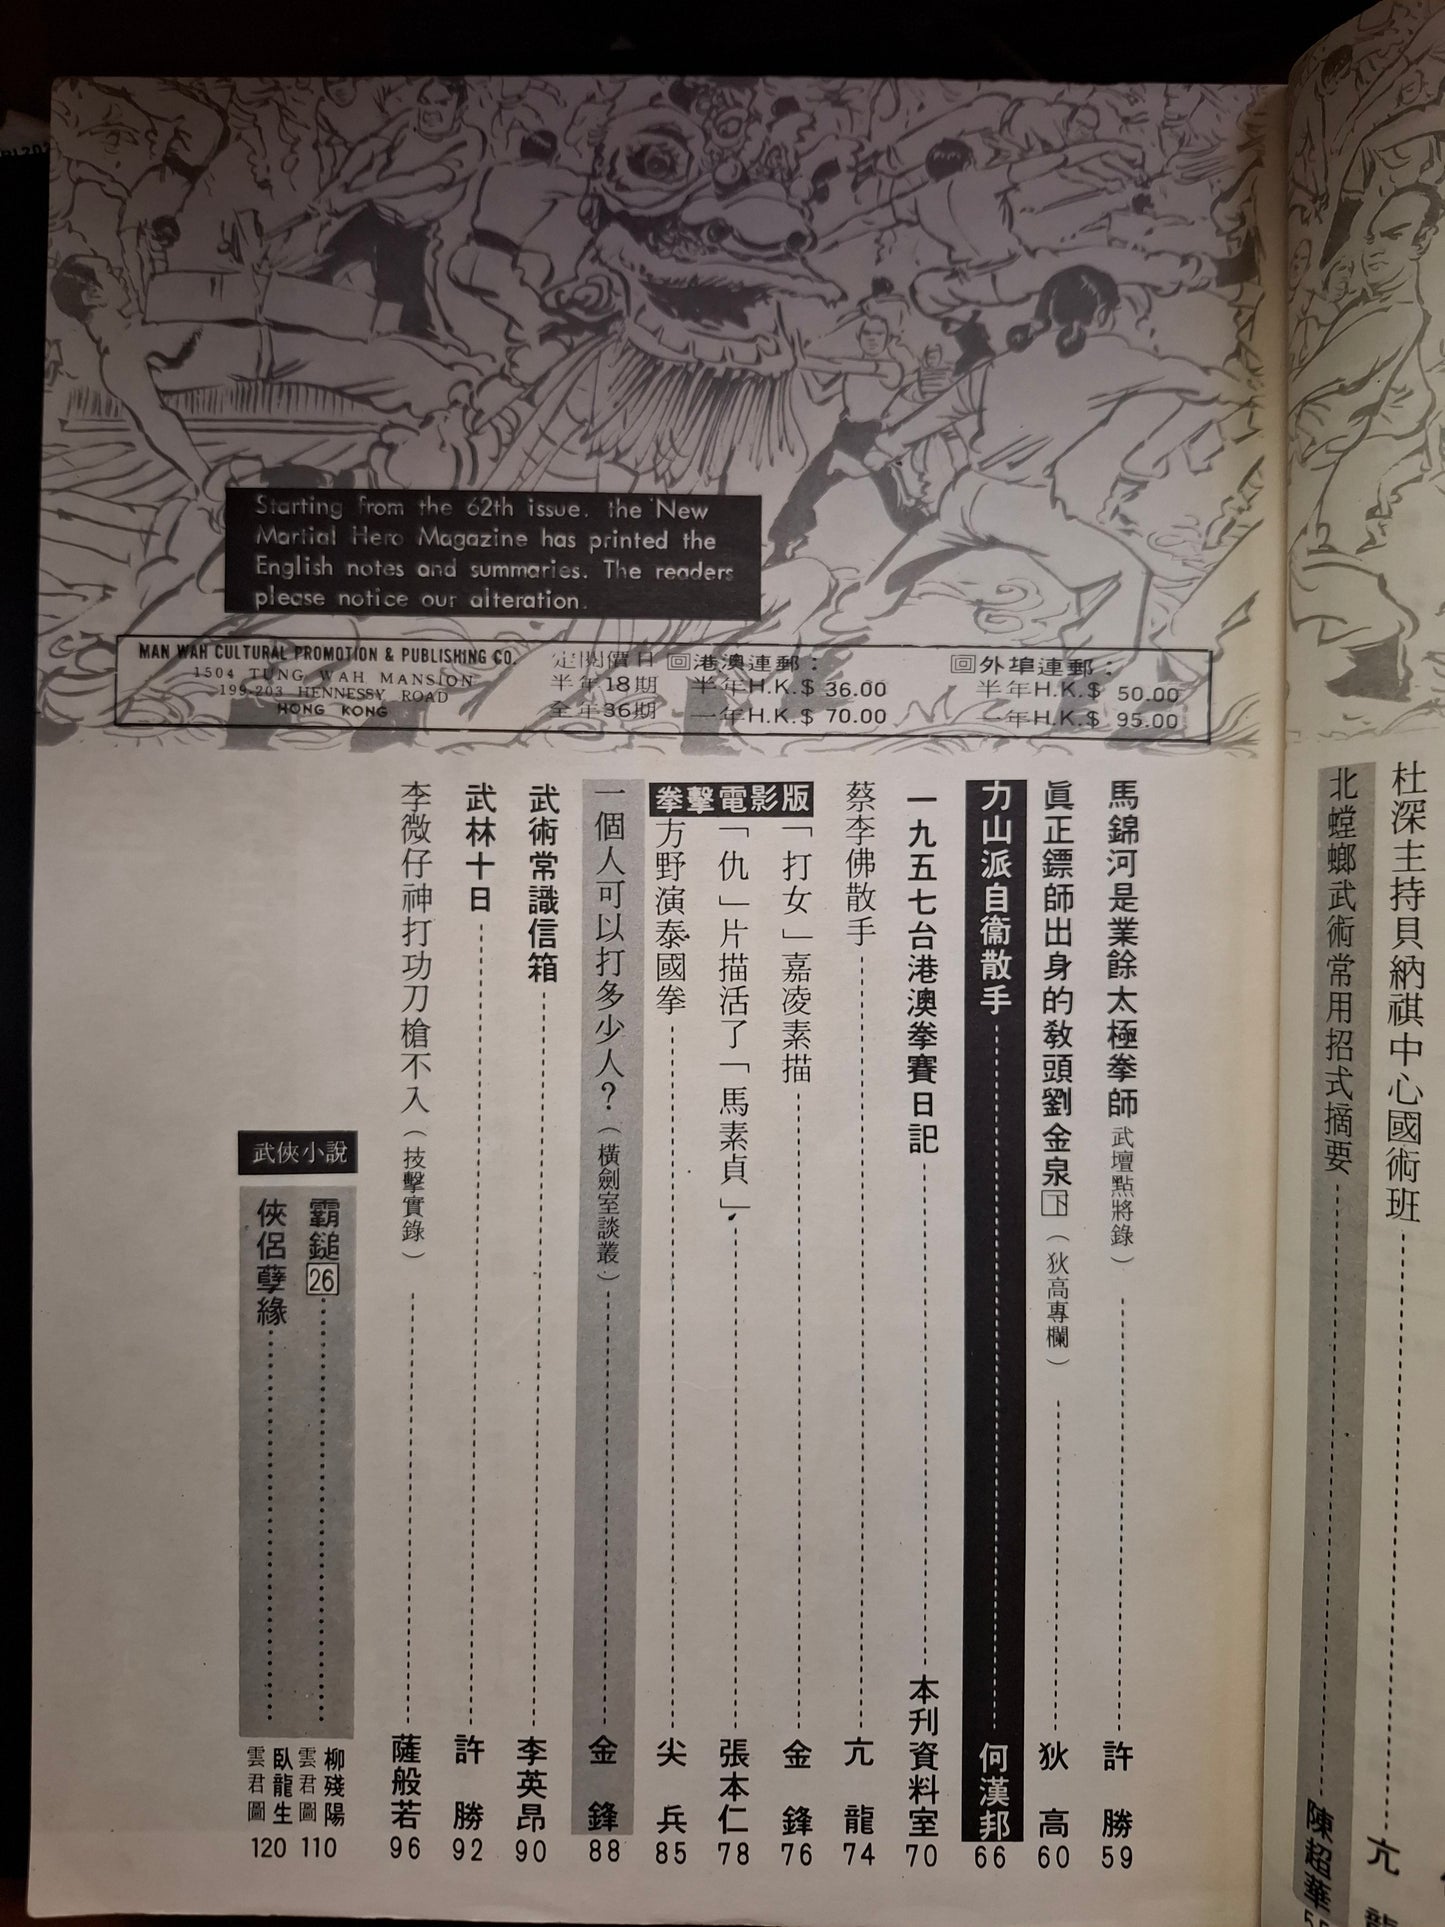 Starting from the 62th issue. the New
Martial Hero Magazine has printed the
English notes and summaries. The readers
please notice our alteration.
MAN WAH CULTURAL PROMOTION & PUBLISHING CO.
1504 TUNG WAH MANSION
199-203 HENNESSY ROAD
HONG KONG
定閱價目
半年18期
全年36期
回港澳連郵：
半年H.K.$ 36.00
一年H.K.$ 70.00
回外埠連郵：
半年H.K.$ 50.00
一年H.K.$ 95.00
杜深主持貝納祺中心國術班 亢龍
北螳螂武術常用招式摘要 陳超華
馬錦河是業餘太極拳師（武壇點將錄） 許勝 59
眞正鏢師出身的敎頭劉金泉下（狄高專欄） 狄高 60
力山派自衞散手 何漢邦 66
一九五七台港澳拳賽日記 本刊資料室 70
蔡李佛散手 亢龍 74
拳擊電影版
「打女」嘉凌素描 金鋒 76
「仇」片描活了「馬素貞」 張本仁 78
方野演泰國拳 尖兵 85
一個人可以打多少人？（橫劍室談叢） 金鋒 88
武術常識信箱 李英昂 90
武林十日 許勝 92
李微仔神打功刀槍不入（技擊實錄） 薩般若 96
武俠小說
霸鎚26 柳殘陽 雲君圖 110
俠侶孽緣 臥龍生 雲君圖 120